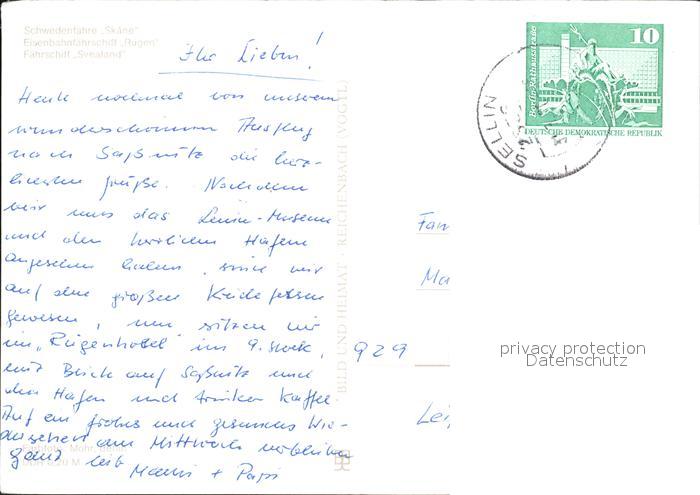 Schwedenfähre „Skåne"
Eisenbahnfährschiff „Rügen"
Fährschiff „Svealand"
Ihr Lieben!
Heute nochmal von unserem
wunderschönen Ausflug
nach Saßnitz die herz-
lichsten Grüße. Nachdem
wir uns das Lenin-Museum
und den herrlichen Hafen
angesehen haben, sind wir
auf den großen Kreidefelsen
gewesen, nun sitzen wir
im „Rügenhotel" im 9. Stock,
mit Blick auf Saßnitz und
den Hafen und trinken Kaffee.
Auf ein frohes und gesundes Wie-
dersehen am Mittwoch verbleiben
ganz lieb
Mutti + Papi
BILD UND HEIMAT · REICHENBACH (VOGTL)
10
Berlin, Rathausstraße
DEUTSCHE DEMOKRATISCHE REPUBLIK
SELLIN
Fam
Ma
929
Lei
privacy protection
Datenschutz